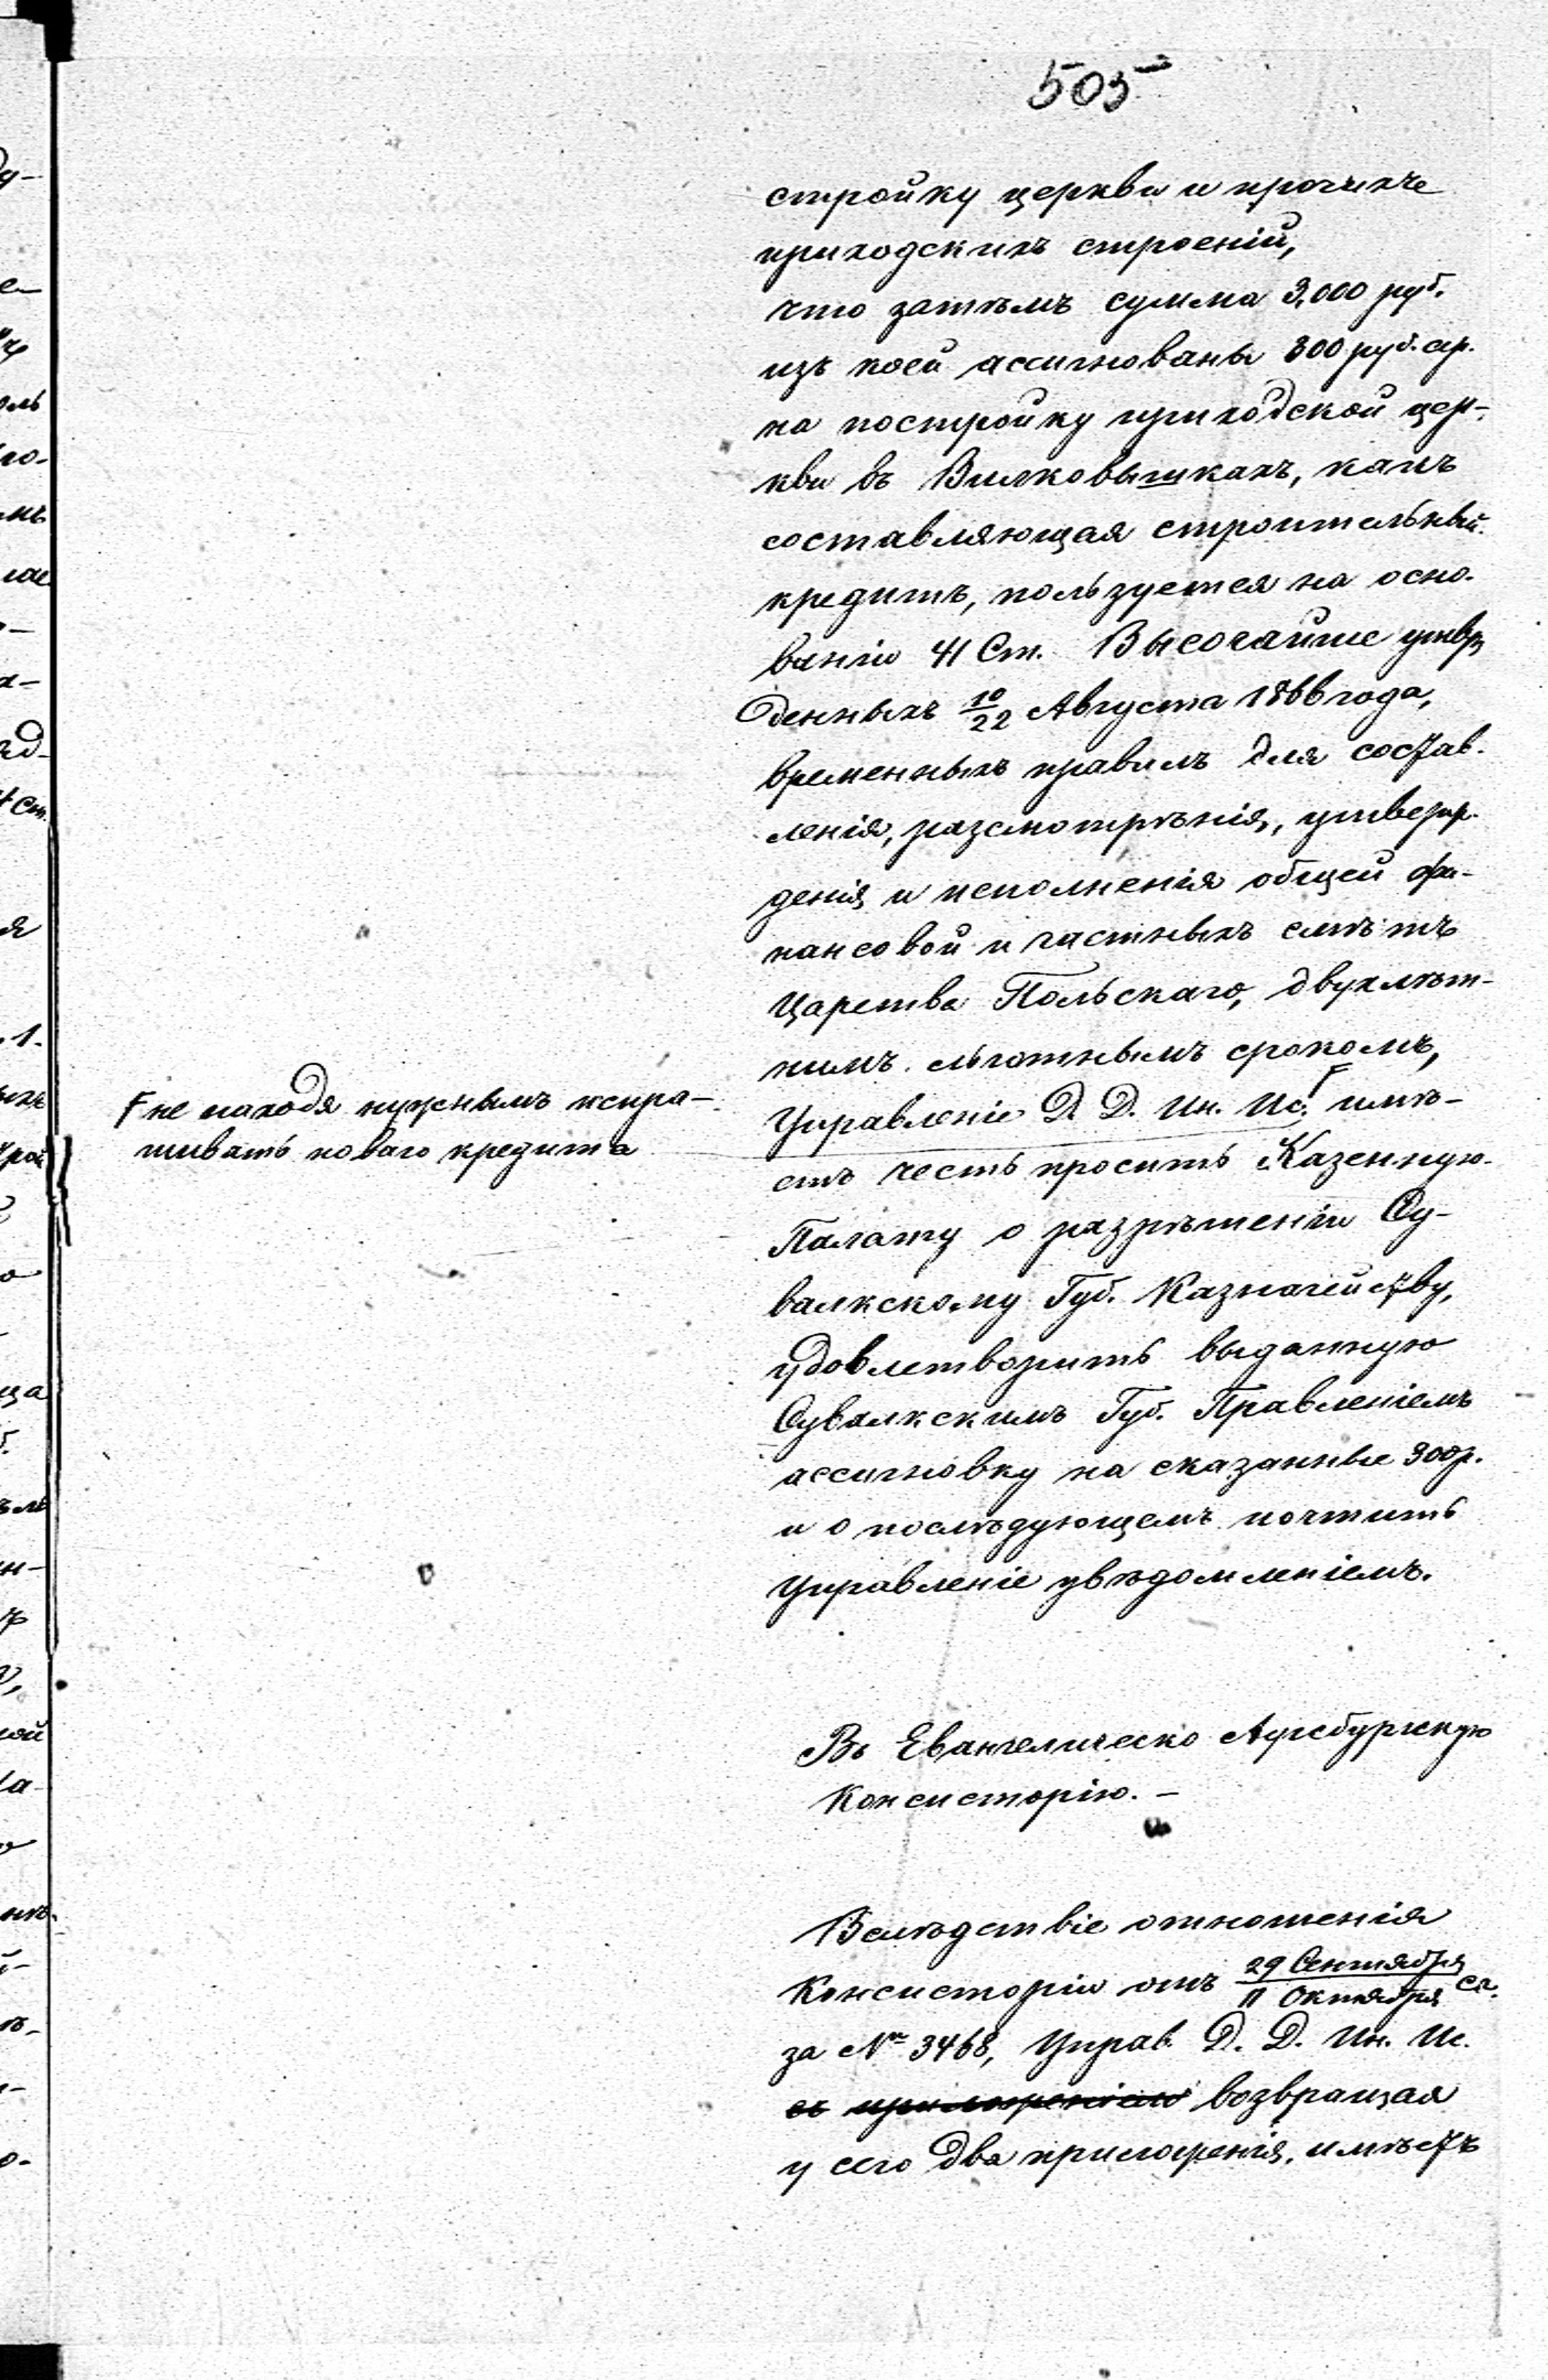 505
стройку церкви и прочихъ
приходскихъ строеній,
что затѣмъ сумма 3,000 руб.
изъ коей ассигнованы 300 руб. ср.
на постройку приходской цер-
кви въ Вилковышкахъ, какъ
составляющая строительный
кредитъ, пользуется на осно-
ваніи 41 Ст. Высочайше утвер
денныхъ 10/22 Августа 1866 года,
временныхъ правилъ для состав-
ленія, разсмотрѣнія, утверж-
денія и исполненія общей фи-
нансовой и частныхъ смѣтъ
Царства Польскаго, двухлѣт-
нимъ льготнымъ срокомъ,
Управленіе Д. Д. Ин. Ис. F имѣ-
етъ честь просить Казенную
Палату о разрѣшеніи Су-
валкскому Губ. Казначейству,
удовлетворить выданную
Сувалкскимъ Губ. Правленіемъ
ассигновку на сказанные 300 р.
и о послѣдующемъ почтить
Управленіе увѣдомленіемъ.
F не находя нужнымъ испра-
шивать новаго кредита
Въ Евангелическо Аугсбургскую
Консисторію. -
Вслѣдствіе отношенія
Консисторіи отъ 29 Сентября/11 Октября с.г.
за № 3468, Управ. Д. Д. Ин. Ис.
съ приложеніемъ возвращая
у сего два приложенія, имѣетъ